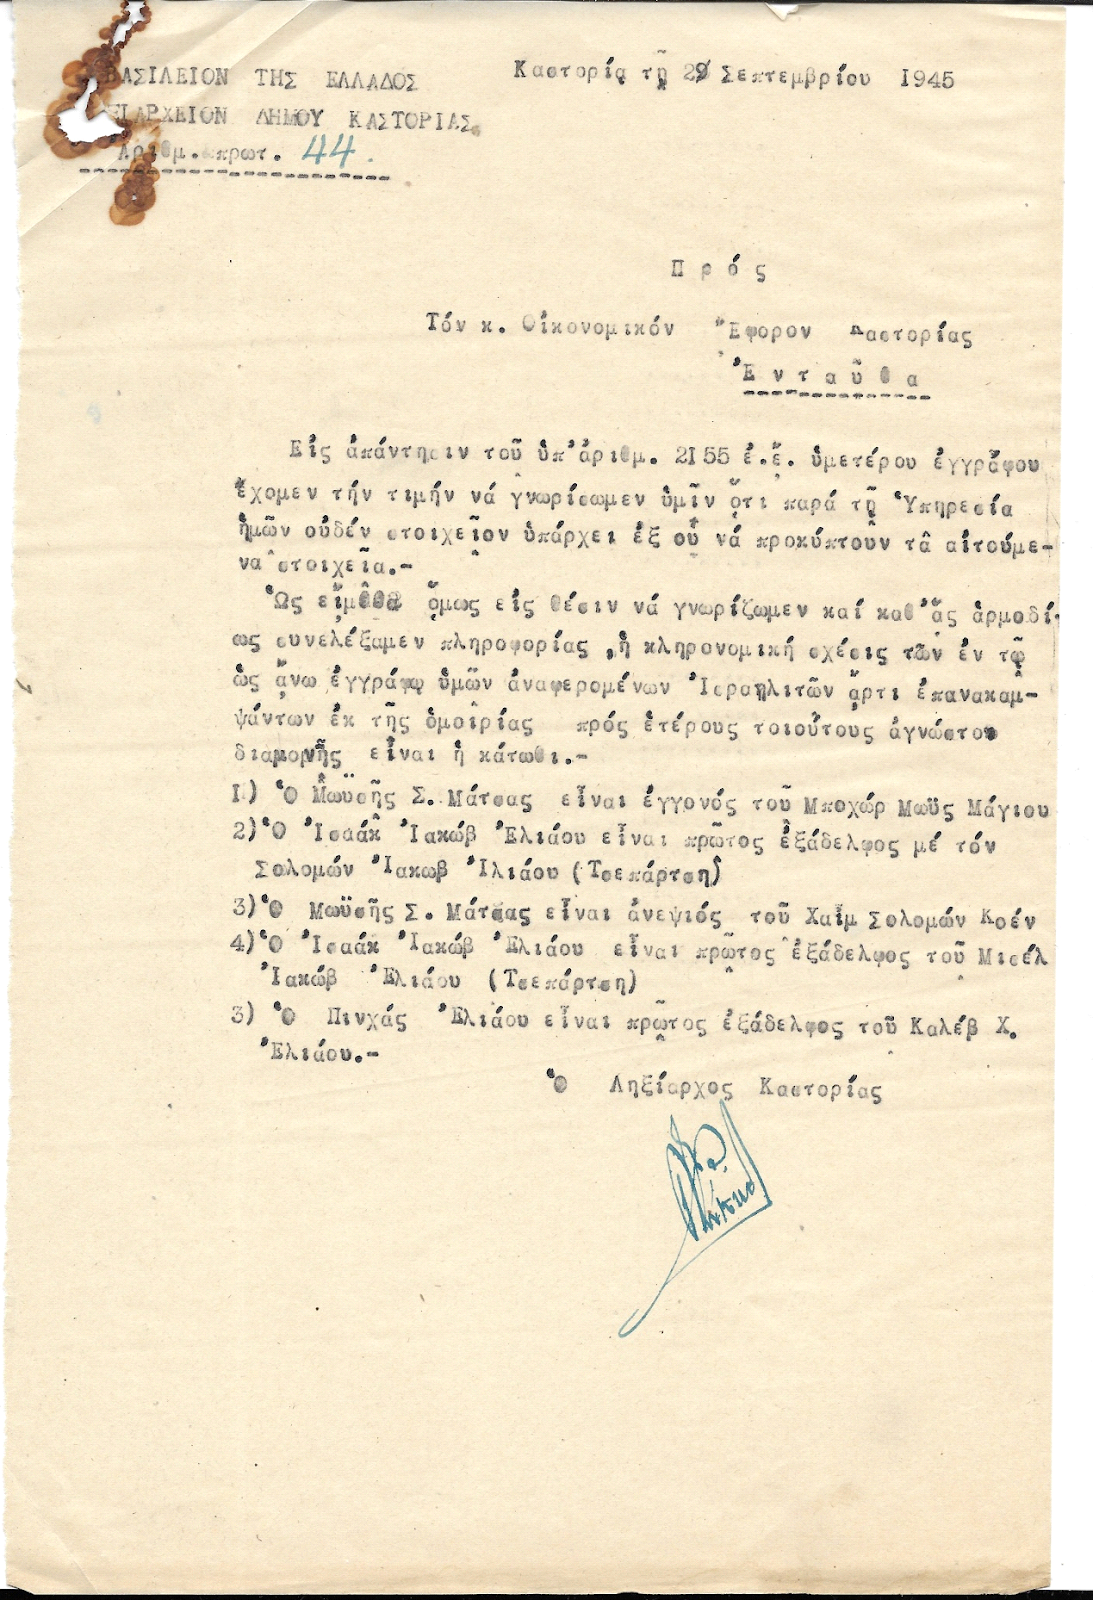 ΒΑΣΙΛΕΙΟΝ ΤΗΣ ΕΛΛΑΔΟΣ
Καστορίᾳ τῇ 29 Σεπτεμβρίου 1945
ΔΗΜΟΥ ΚΑΣΤΟΡΙΑΣ
Ἀριθμ. πρωτ. 44.
Π ρ ό ς
Τόν κ. Οἰκονομικόν Ἔφορον Καστορίας
Ἐ ν τ α ῦ θ α
Εἰς ἀπάντησιν τοῦ ὑπ'ἀριθμ. 2155 ἐ.ἔ. ὑμετέρου ἐγγράφου
ἔχομεν τήν τιμήν νά γνωρίσωμεν ὑμῖν ὅτι παρά τῇ Ὑπηρεσία
ἡμῶν οὐδέν στοιχεῖον ὑπάρχει ἐξ οὗ νά προκύπτουν τά αἰτούμε-
να στοιχεῖα.-
Ὡς εἴμεθα ὅμως εἰς θέσιν νά γνωρίζωμεν καί καθ'ἅς ἁρμοδί-
ως συνελέξαμεν πληροφορίας ,ἡ κληρονομική σχέσις τῶν ἐν τῷ
ὡς ἄνω ἐγγράφῳ ὑμῶν ἀναφερομένων Ἰσραηλιτῶν ἄρτι ἐπανακαμ-
ψάντων ἐκ τῆς ὁμοιρίας πρός ἑτέρους τοιούτους ἀγνώστου
διαμονῆς εἶναι ἡ κάτωθι.-
1) Ὁ Μωυσῆς Σ. Μάτσας εἶναι ἐγγονός τοῦ Μποχώρ Μωϋς Μάγιου
2) Ὁ Ἰσαάκ Ἰακώβ Ἐλιάου εἶναι πρῶτος ἐξάδελφος μέ τόν
Σολομών Ἰακωβ Ἰλιάου (Τσεπάρτση)
3) Ὁ Μωϋσῆς Σ. Μάτσας εἶναι ἀνεψιός τοῦ Χαΐμ Σολομών Κοέν
4) Ὁ Ἰσαάκ Ἰακώβ Ἐλιάου εἶναι πρῶτος ἐξάδελφος τοῦ Μισέλ
Ἰακώβ Ἐλιάου (Τσεπάρτση)
3) Ὁ Πινχάς Ἐλιάου εἶναι πρῶτος ἐξάδελφος τοῦ Καλέβ Χ.
Ἐλιάου.-
Ὁ Ληξίαρχος Καστορίας